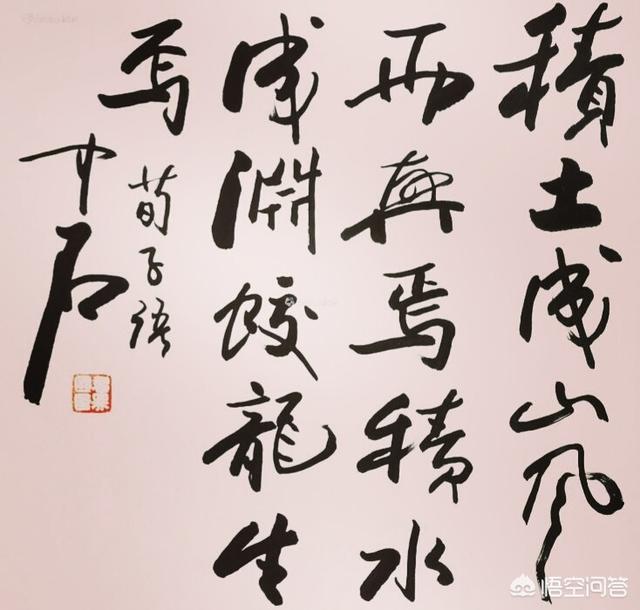 積土成山風
雨興焉積水
成淵蛟龍生
焉
荀子語
中石
悟空问答